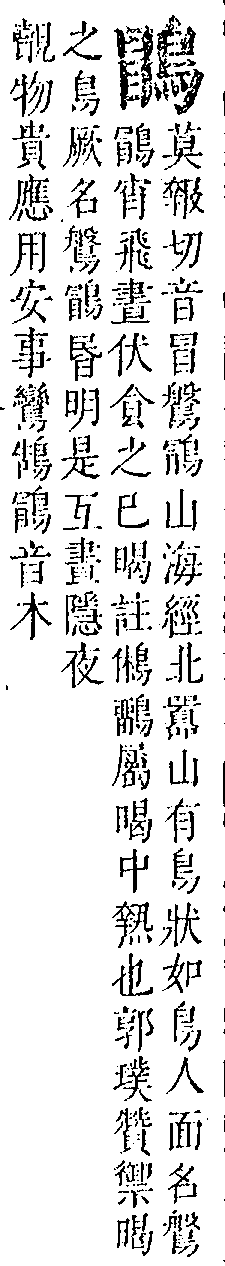 莫報切音冒山海經北嚻山有鳥狀如烏人面名
宵飛晝伏食之已暍註鵂鶹屬暍中熱也郭璞贊禦暍
之鳥厥名昏明是互晝隱夜
覿物貴應用安事鸞鵠音木